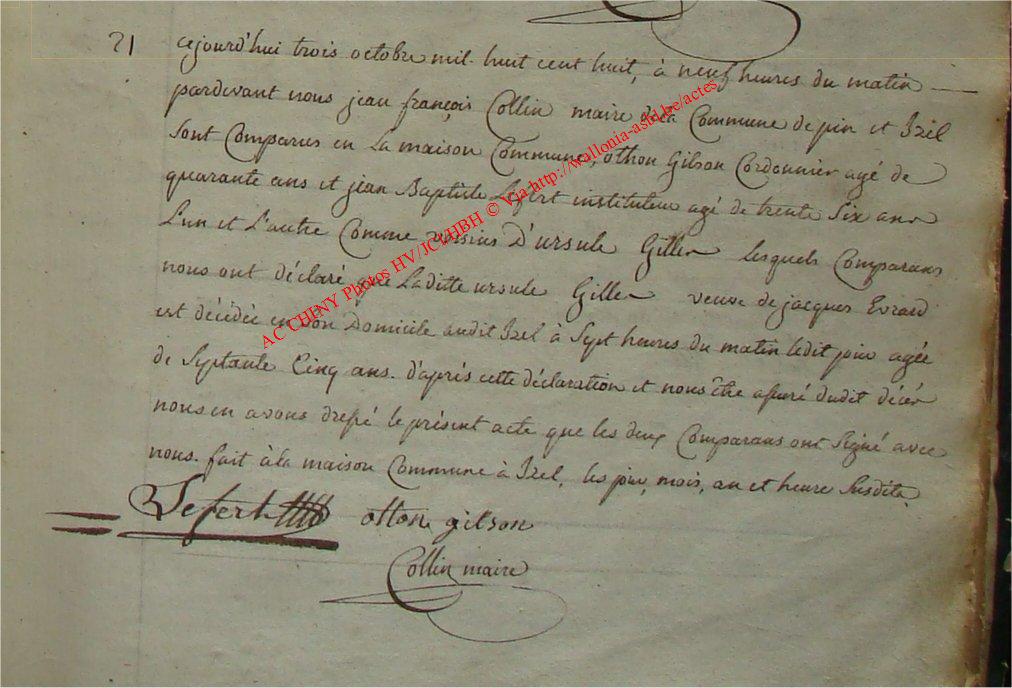 21 cejourd'hui trois octobre mil huit cent huit, à neuf heures du matin
pardevant nous jean françois Collin maire de la Commune de pin et Izel
sont Comparus en La maison Commune, othon Gilson Cordonnier agé de
quarante ans et jean Baptiste Lefert instituteur agé de trente Six ans
L'un et L'autre Comme voisins D'ursule Gilles lesquels Comparans
nous ont déclaré que Laditte ursule Gilles veuve de jacques Evrard
est décédée en Son Domicile audit Izel à Sept heures du matin ledit jour agée
de Septante Cinq ans. d'après cette déclaration et nous être assuré dudit décès
nous en avons dressé le présent acte que les deux Comparans ont Signé avec
nous. fait à la maison Commune à Izel, les jour, mois, an et heure Susdits.
Lefert othon gilson
Collin maire
AC CHINY Photos HV/JCL/HBH © Via http://wallonia-asbl.be/actes